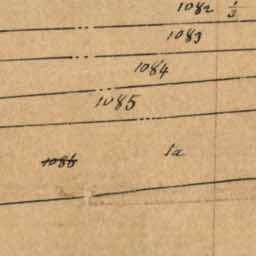 1082 1/3
1083
1084
1085
1086 1a